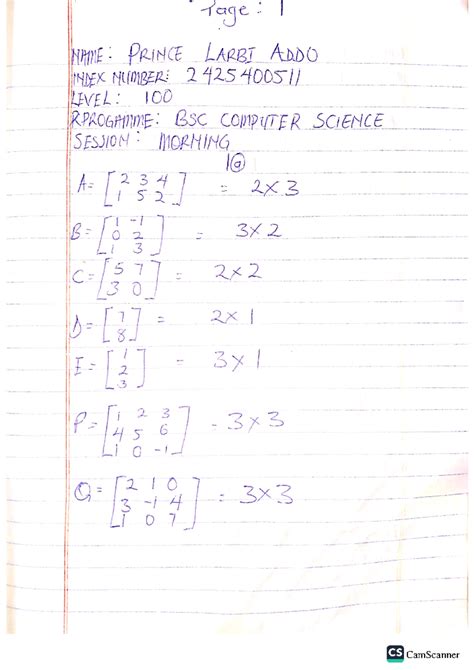 Page: 1
NAME: PRINCE LARBI ADDO
INDEX NUMBER: 2425400511
LEVEL: 100
RPROGAMME: BSC COMPUTER SCIENCE
SESSION: MORNING
1(a)
A= [2 3 4
1 5 2] = 2x3
B= [1 -1
0 2
1 3] = 3x2
C= [5 7
3 0] = 2x2
D= [7
8] = 2x1
E= [1
2
3] = 3x1
P= [1 2 3
4 5 6
1 0 -1] - 3x3
Q= [2 1 0
3 -1 4
1 0 7] = 3x3
CS CamScanner